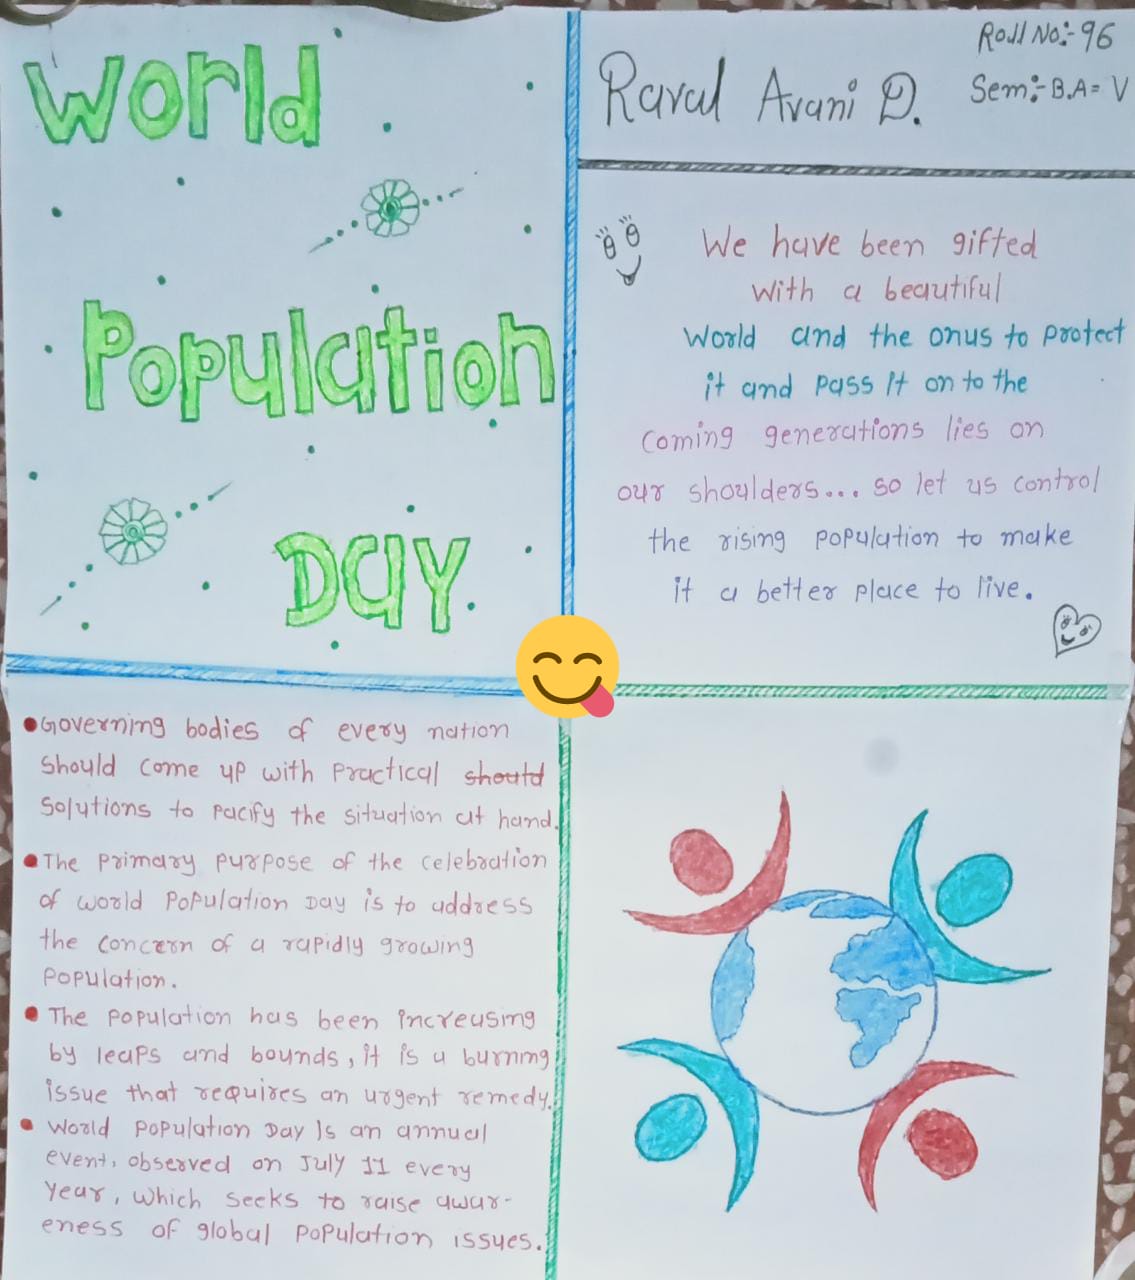 World
Population
Day
Roll No:- 96
Raval Avani D.
Sem:- B.A = V
We have been gifted
with a beautiful
World and the onus to protect
it and pass it on to the
coming generations lies on
our shoulders... so let us control
the rising population to make
it a better place to live.
Governing bodies of every nation
should come up with practical should
solutions to pacify the situation at hand.
The primary purpose of the celebration
of world Population Day is to address
the concern of a rapidly growing
population.
The population has been increasing
by leaps and bounds, it is a burning
issue that requires an urgent remedy.
World population Day is an annual
event, observed on July 11 every
year, which seeks to raise awar-
eness of global population issues.